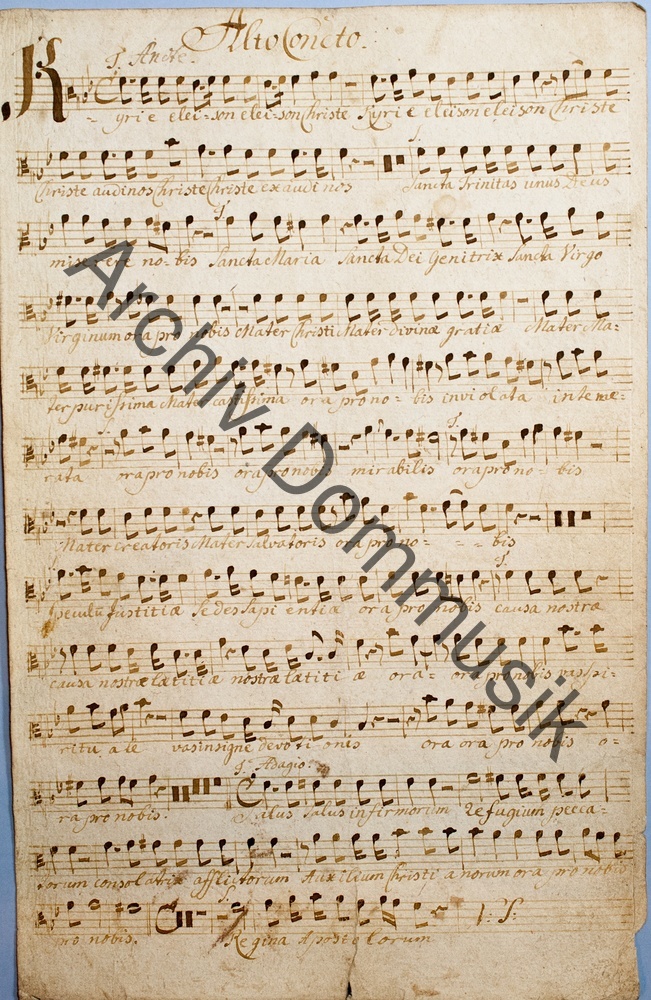 Alto Conc̄to.
T. And̄te.
Kyrie elei-son elei-son Christe Kyrie eleison eleison Christe
Christe audinos Christe Christe exaudi nos T. Sancta Trinitas unus Deus
mise-rere no-bis T. Sancta Maria Sancta Dei Genitrix Sancta Virgo
Virginum ora pro nobis Mater Christi Mater divinæ gratiæ Mater Ma=
ter purissima Mater castissima ora pro no-bis inviolata inteme-
rata ora pro nobis ora pro nobis mirabilis T. ora pro no-bis
Mater Creatoris Mater Salvatoris ora pro no---bis
Speculu Justitiæ Sedes Sapientiæ ora pro nobis T. causa nostra
causa nostræ lætitiæ nostræ lætitiæ ora- ora pro nobis vas spi-
ritu a le vas insigne devotionis ora ora pro nobis o-
T. Adagio.
ra pro nobis. Salus Salus infirmorum Refugium pecca-
torum consolatrix afflictorum Auxilium Christianorum ora pro nobis
pro nobis. T. Regina Apostolorum
Archiv Dommusik